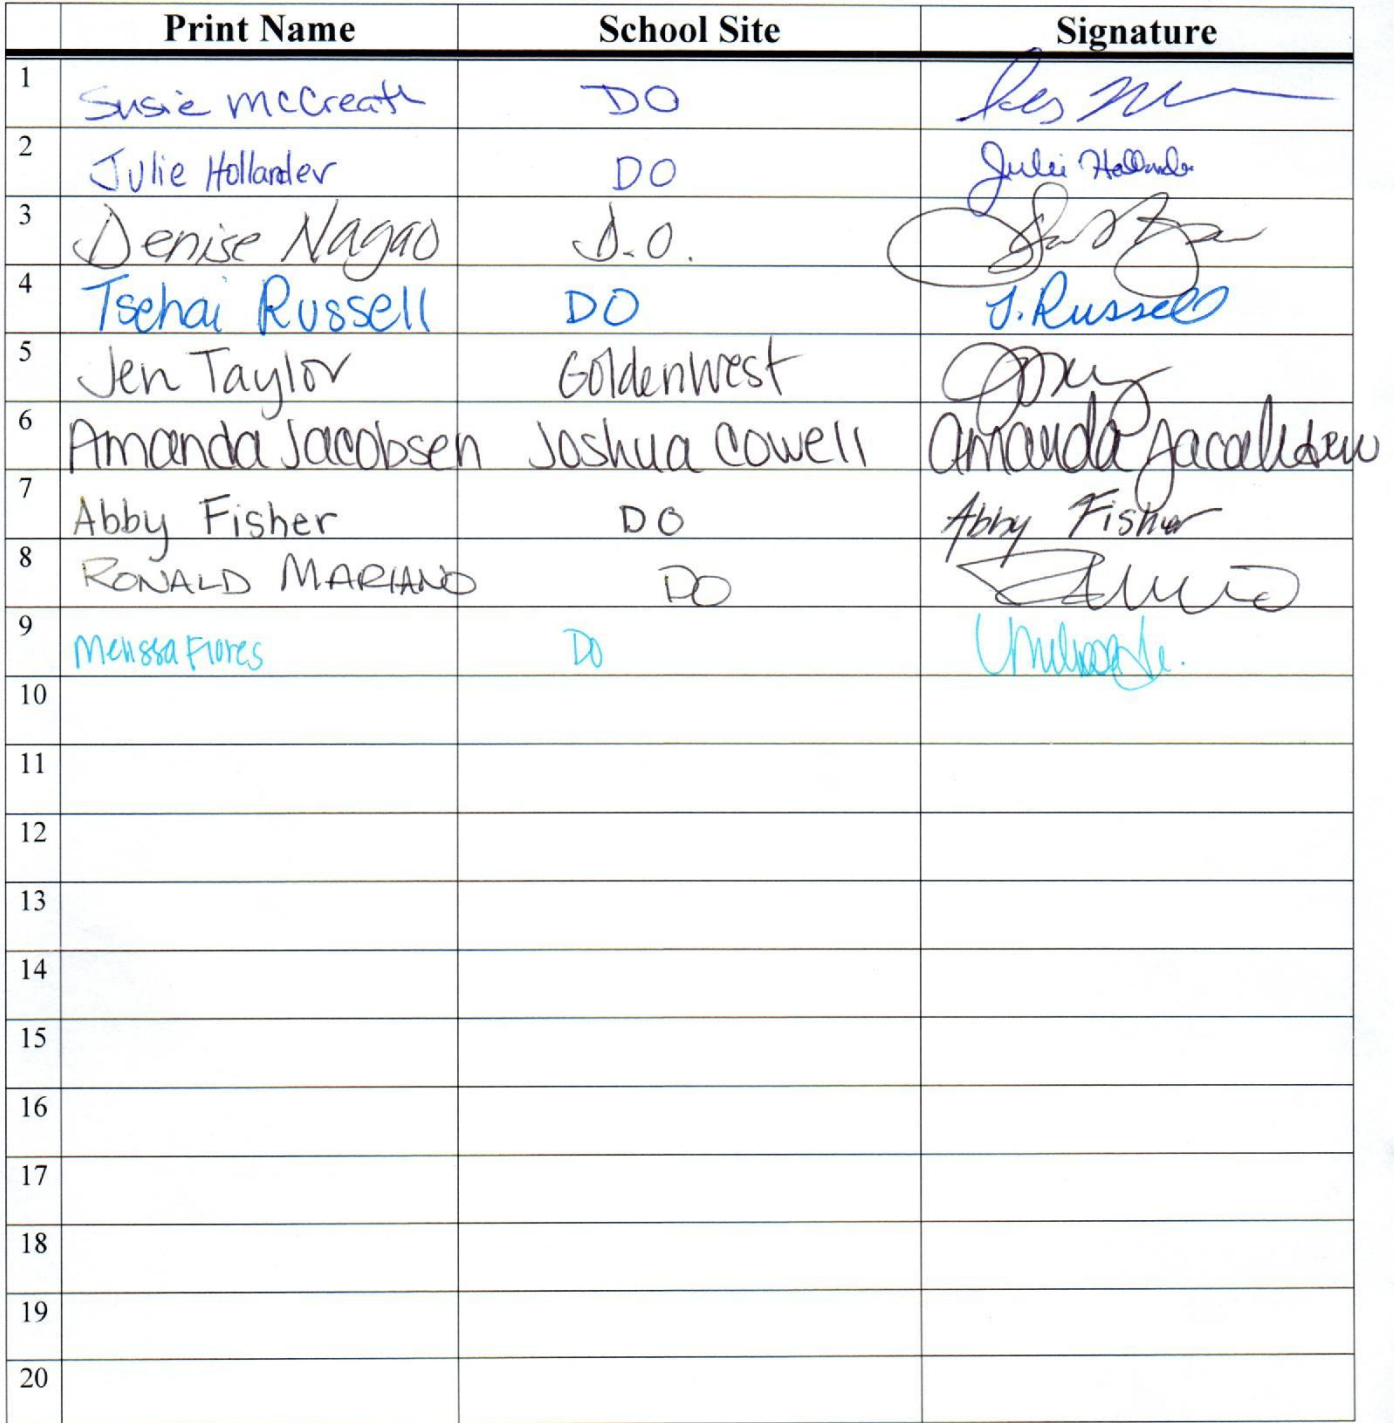 Print Name School Site Signature
1 Susie McCreath DO
2 Julie Hollander DO Julie Hollander
3 Denise Nagao D.O.
4 Tsehai Russell DO T. Russell
5 Jen Taylor Goldenwest
6 Amanda Jacobsen Joshua Cowell Amanda Jacobsen
7 Abby Fisher DO Abby Fisher
8 RONALD MARIANO DO
9 Melissa Flores DO
10
11
12
13
14
15
16
17
18
19
20